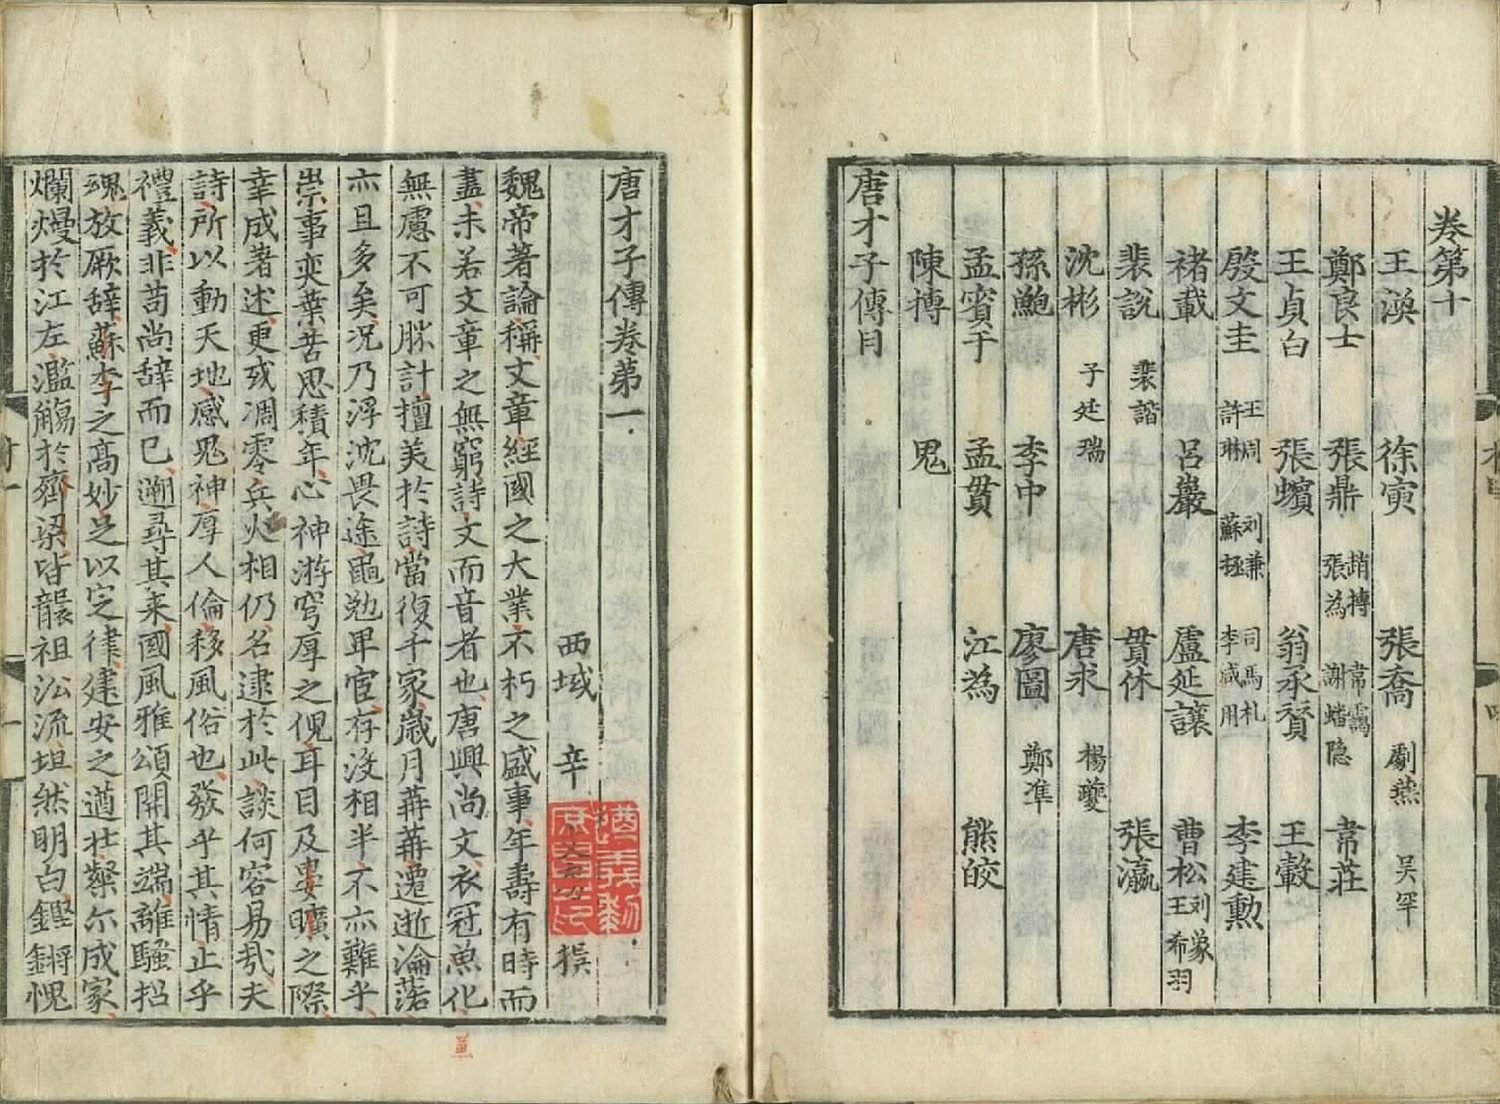 卷第十
王渙 徐寅 張喬 劇燕 吳罕
鄭良士 張鼎 趙摶 張為 韋靄 謝蟠隐 韋莊
王貞白 張蠙 翁承贊 王轂
殷文圭 王周 許琳 刘兼 蘇拯 司馬札 李咸用 李建勲
褚載 呂巖 盧延讓 曹松 刘象 王希羽
裴說 裴諧 貫休 張瀛
沈彬 子廷瑞 唐求 楊夔
孫鲂 李中 廖圖 鄭準
孟賓于 孟貫 江為 熊皎
陳摶 鬼
唐才子傳目
唐才子傳卷第一
西域 辛 撰
魏帝著論稱文章經國之大業不朽之盛事年壽有時而
盡未若文章之無窮詩文而音者也唐興尚文衣冠兼化
無慮不可勝計擅美於詩當復千家歲月苒苒遷逝淪落
亦且多矣况乃浮沈畏途黽勉卑官存没相半不亦難乎
崇事奕葉苦思積年心神游穹厚之倪耳目及晏曠之際
幸成著述更或凋零兵火相仍名逮於此談何容易哉夫
詩所以動天地感鬼神厚人倫移風俗也發乎其情止乎
禮義非苟尚辞而已遡尋其来國風雅頌開其端離騷招
魂放厥辞蘇李之高妙足以定律建安之遒壮粲尔成家
爛熳於江左濫觴於齊梁皆襲祖沿流坦然明白鏗鏘愧